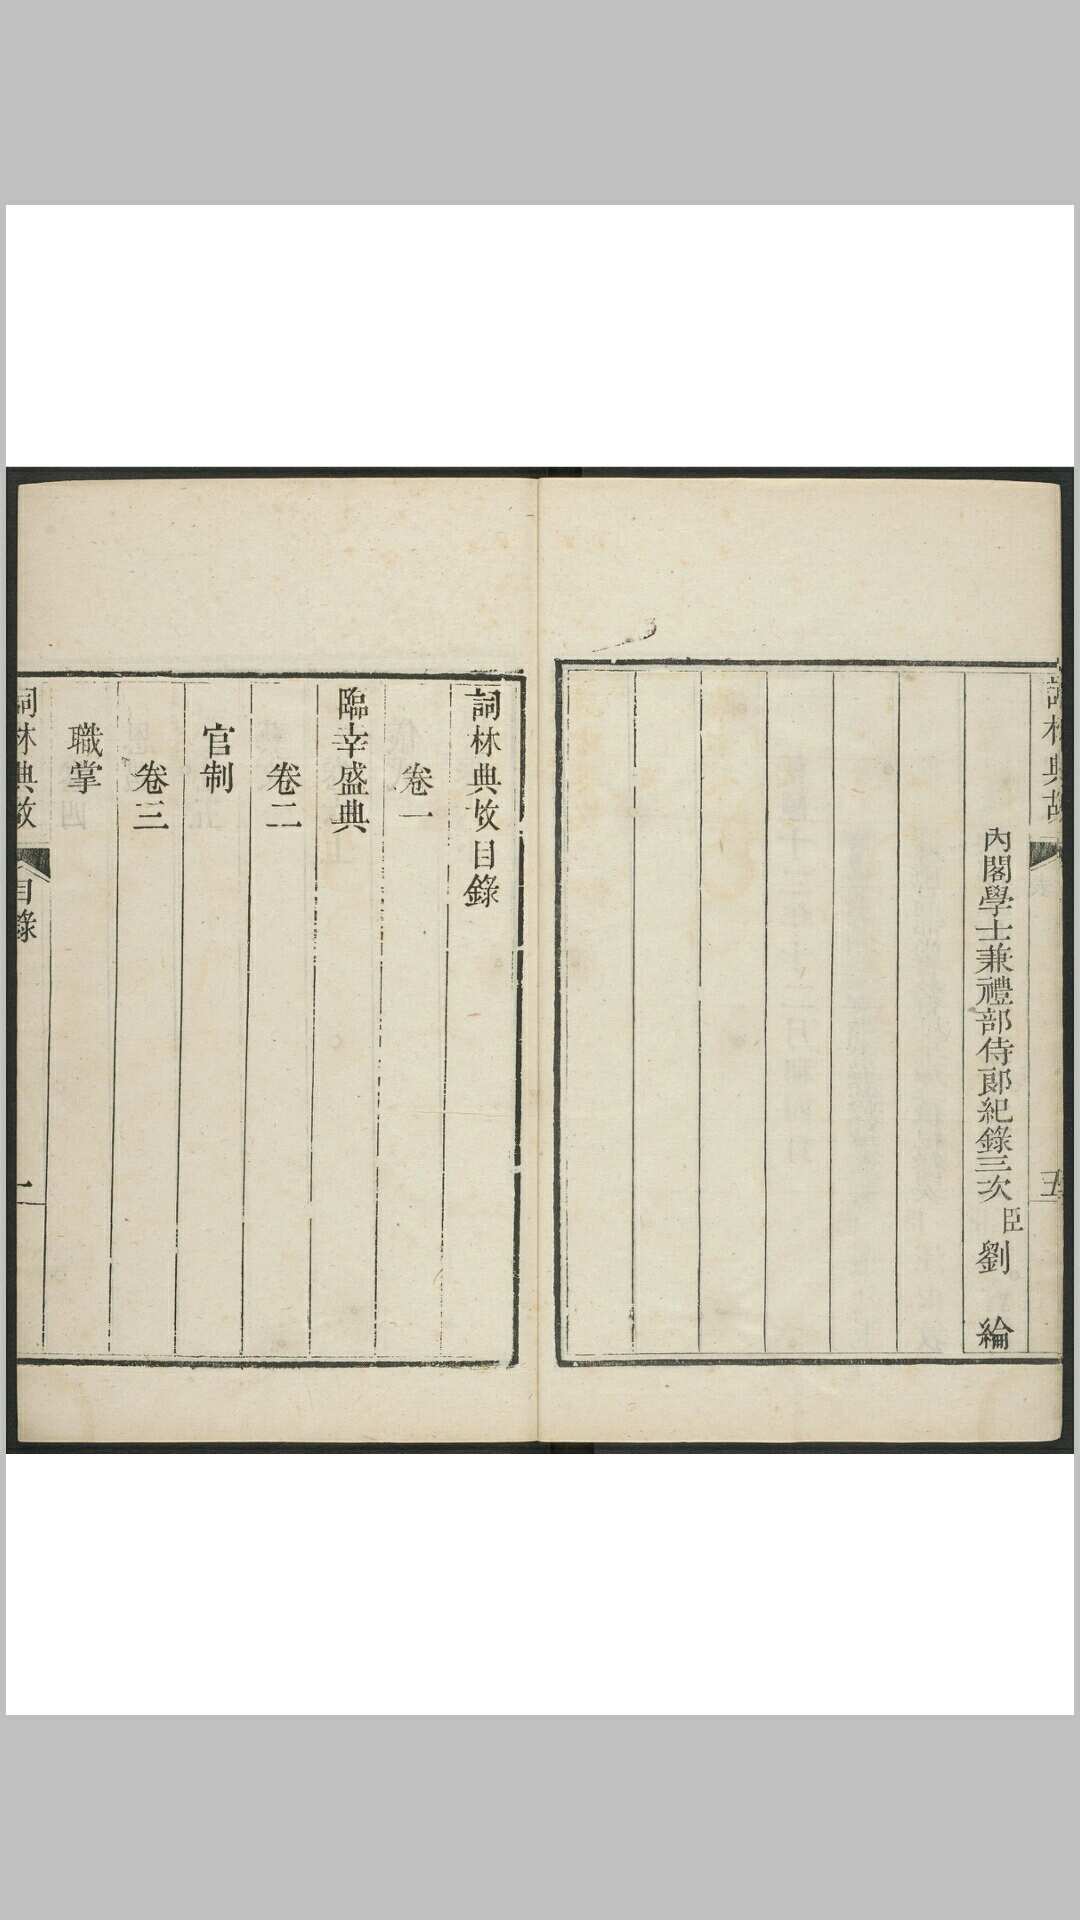 詞林典故
五
內閣學士兼禮部侍郞紀錄三次臣劉綸
詞林典故目錄
卷一
臨幸盛典
卷二
官制
卷三
職掌
詞林典故
目錄
一